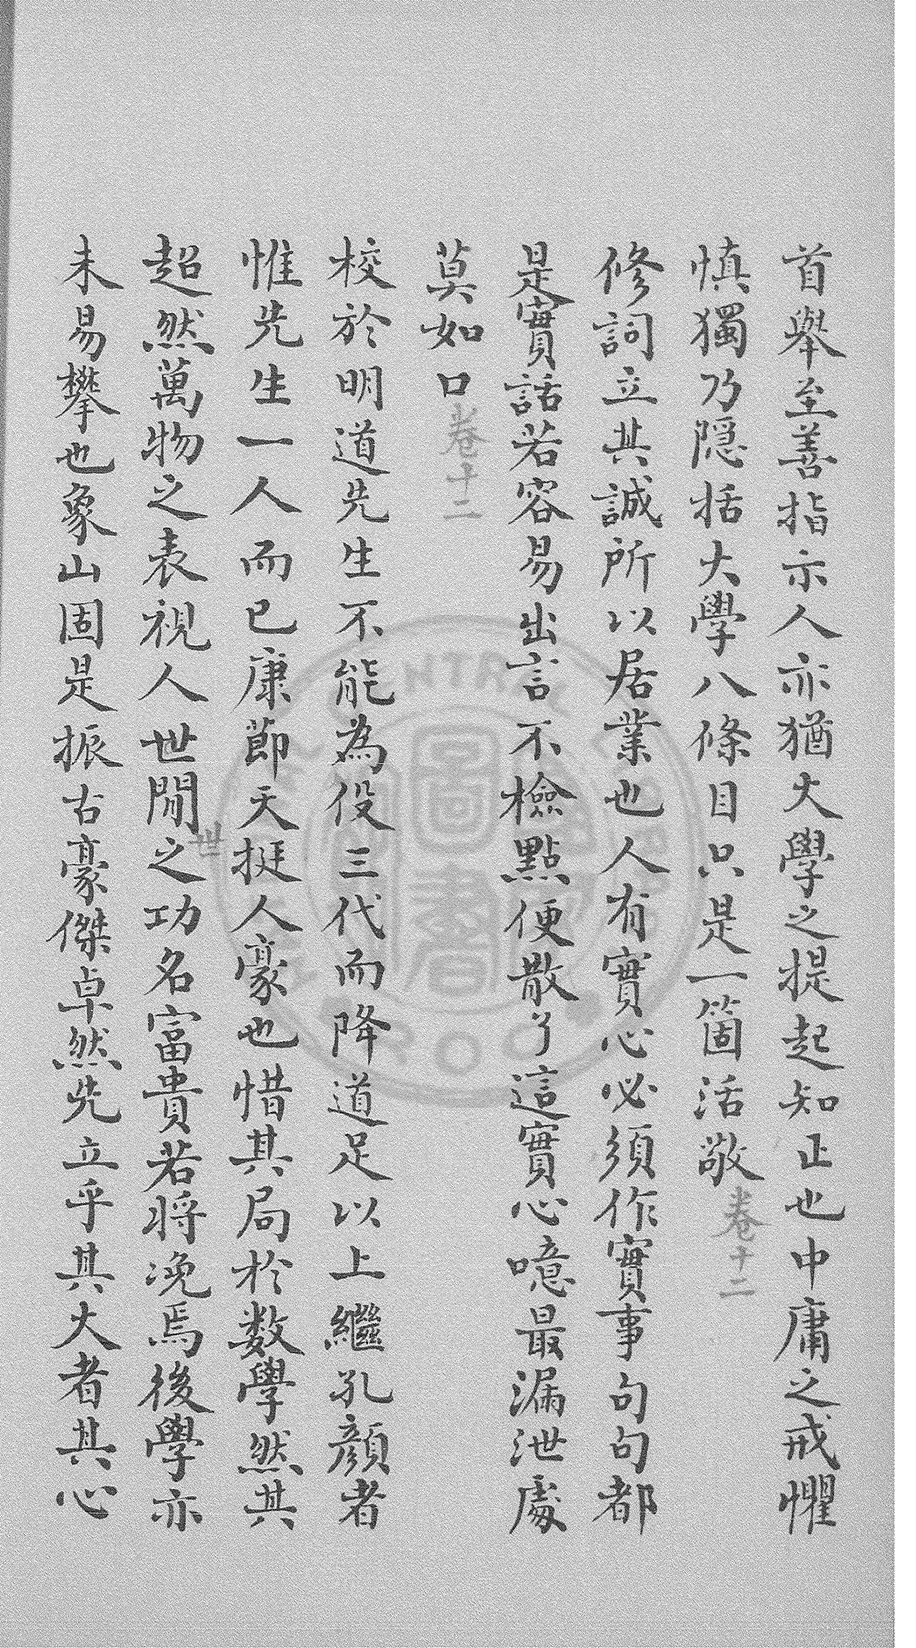 首舉至善指示人亦猶大學之提起知止也中庸之戒懼
慎獨乃隱括大學八條目只是一箇活敬卷十二
修詞立其誠所以居業也人有實心必須作實事句句都
是實話若容易出言不檢點便散了這實心噫最漏泄處
莫如口卷十二
校於明道先生不能為役三代而降道足以上繼孔顏者
惟先生一人而已康節天挺人豪也惜其局於数學然其
超然萬物之表視人世閒之功名富貴若將浼焉後學亦
世
未易攀也象山固是振古豪傑卓然先立乎其大者其心
圖書
CENTRAL